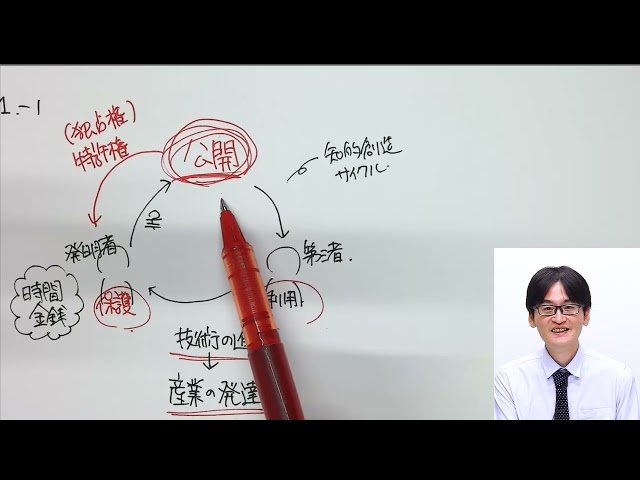 1.-1
(独占権)
特許権
公開
知的創造
サイクル
発明者
第三者.
時間
金銭
保護
利用
技術の
↓
産業の発達